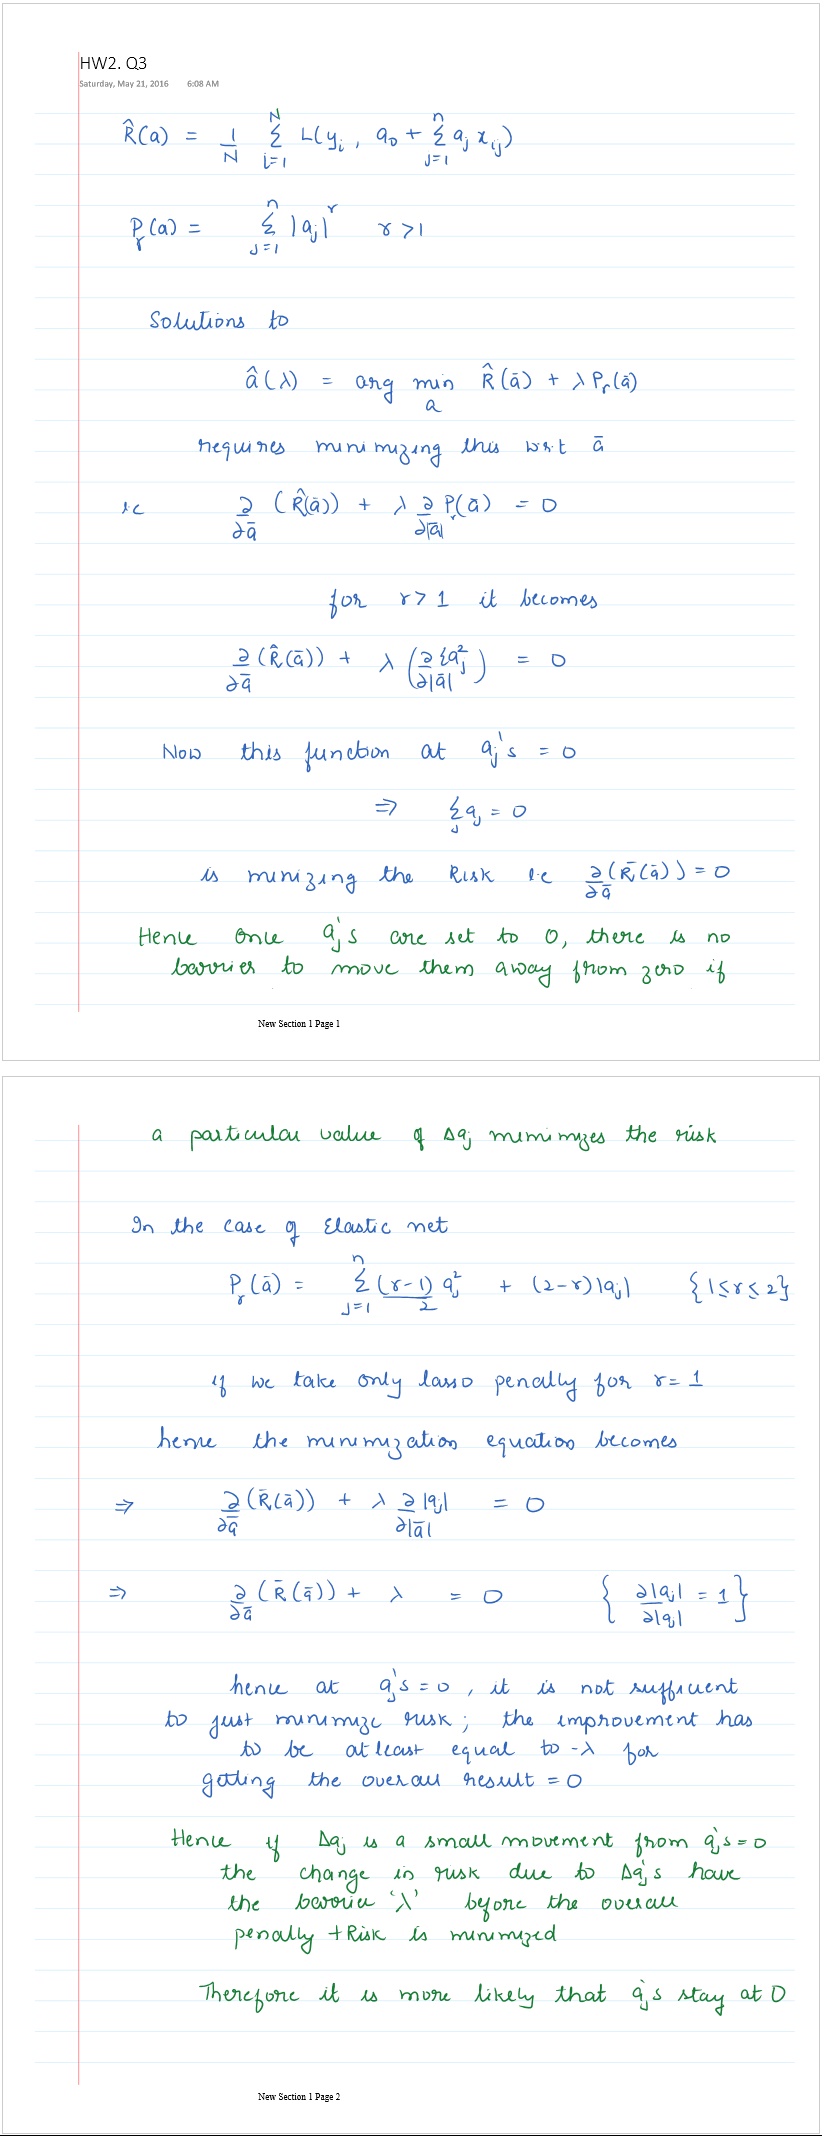 HW2. Q3
Saturday, May 21, 2016 6:08 AM
R̂(a) = 1/N Σ_{i=1}^{N} L(y_i, a_0 + Σ_{j=1}^{n} a_j x_ij)
P_γ(a) = Σ_{j=1}^{n} |a_j|^γ γ > 1
Solutions to
â(λ) = arg min_a R̂(ā) + λ P_r(ā)
requires minimizing this wrt ā
ie ∂/∂ā (R̂(ā)) + λ ∂/∂|ā| P_r(ā) = 0
for r > 1 it becomes
∂/∂ā (R̂(ā)) + λ (∂ Σ a_j^2 / ∂|ā|) = 0
Now this function at a_j's = 0
⇒ Σ_j a_j = 0
is minizing the Risk i.e ∂/∂ā (R̄(ā)) = 0
Hence once a_j's are set to 0, there is no
barrier to move them away from zero if
New Section 1 Page 1
a particular value of Δa_j minimizes the risk
In the case of Elastic net
P_r(ā) = Σ_{j=1}^{n} (r-1)/2 a_j^2 + (2-r)|a_j| {1≤r≤2}
if we take only lasso penalty for r = 1
hence the minimization equation becomes
⇒ ∂/∂ā (R̄(ā)) + λ ∂|a_j|/∂|ā| = 0
⇒ ∂/∂ā (R̄(ā)) + λ = 0 { ∂|a_j|/∂|a_j| = 1 }
hence at a_j's = 0, it is not sufficient
to just minimize risk; the improvement has
to be atleast equal to -λ for
getting the overall result = 0
Hence if Δa_j is a small movement from a_j's = 0
the change in risk due to Δa_j's have
the barrier 'λ' before the overall
penalty + Risk is minimized
Therefore it is more likely that a_j's stay at 0
New Section 1 Page 2